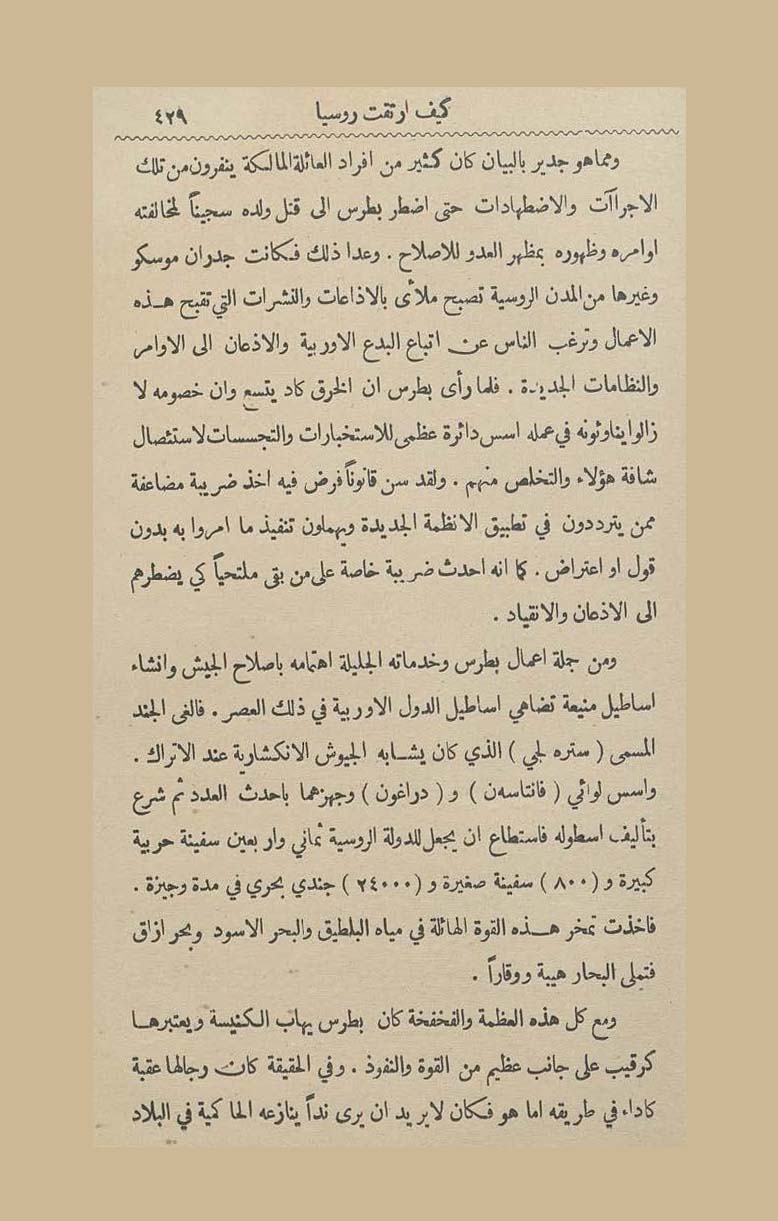 كيف ارتقت روسيا ٤٢٩
ومما هو جدير بالبيان كان كثير من افراد العائلة المالكة ينفرون من تلك
الاجراآت والاضطهادات حتى اضطر بطرس الى قتل ولده سجيناً لمخالفته
اوامره وظهوره بمظهر العدو للاصلاح . وعدا ذلك فكانت جدران موسكو
وغيرها من المدن الروسية تصبح ملأى بالاذاعات والنشرات التي تقبح هذه
الاعمال وترغب الناس عن اتباع البدع الاوربية والاذعان الى الاوامر
والنظامات الجديدة . فلما رأى بطرس ان الخرق كاد يتسع وان خصومه لا
زالوا يناوئونه في عمله اسس دائرة عظمى للاستخبارات والتجسسات لاستئصال
شافة هؤلاء والتخلص منهم . ولقد سن قانوناً فرض فيه اخذ ضريبة مضاعفة
ممن يترددون في تطبيق الانظمة الجديدة ويهملون تنفيذ ما امروا به بدون
قول او اعتراض . كما انه احدث ضريبة خاصة على من بقى ملتحياً كي يضطرهم
الى الاذعان والانقياد .
ومن جملة اعمال بطرس وخدماته الجليلة اهتمامه باصلاح الجيش وانشاء
اساطيل منيعة تضاهي اساطيل الدول الاوربية في ذلك العصر . فالغى الجند
المسمى ( ستره لجي ) الذي كان يشابه الجيوش الانكشارية عند الاتراك .
واسس لوائي ( فانتاسەن ) و ( دراغون ) وجهزهما باحدث العدد ثم شرع
بتأليف اسطوله فاستطاع ان يجعل للدولة الروسية ثماني واربعين سفينة حربية
كبيرة و ( ٨٠٠ ) سفينة صغيرة و ( ٢٤٠٠٠ ) جندي بحري في مدة وجيزة .
فاخذت تمخر هذه القوة الهائلة في مياه البلطيق والبحر الاسود وبحر ازاق
فتملى البحار هيبة ووقاراً .
ومع كل هذه العظمة والفخفخة كان بطرس يهاب الكنيسة ويعتبرها
كرقيب على جانب عظيم من القوة والنفوذ . وفي الحقيقة كان رجالها عقبة
كاداء في طريقه اما هو فكان لا يريد ان يرى نداً ينازعه الحاكمية في البلاد